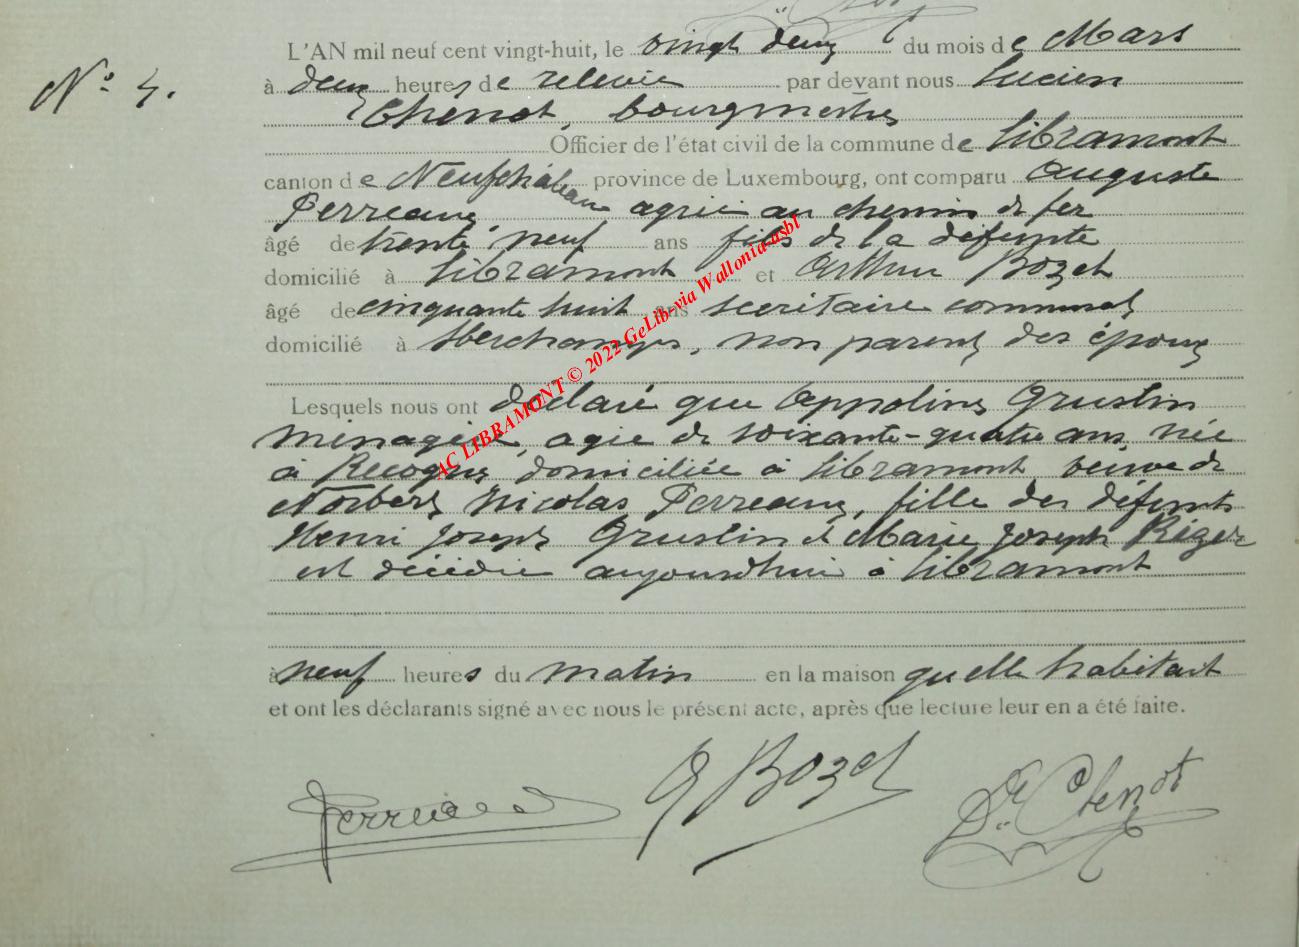 L'AN mil neuf cent vingt-huit, le vingt deux du mois de Mars
N° 4.
à deux heures de relevée par devant nous Lucien
Chenot, bourgmestre
Officier de l'état civil de la commune de Libramont
canton de Neufchâteau province de Luxembourg, ont comparu Auguste
Perreaux agréé au chemin de fer
âgé de trente neuf ans fils de la défunte
domicilié à Libramont et Arthur Bozet
âgé de cinquante huit ans secrétaire communal
domicilié à non parents des époux
Lesquels nous ont déclaré que Appoline Grustin
ménagère, agée de soixante-quatre ans née
à Recogne domiciliée à Libramont veuve de
Norbert Nicolas Perreaux, fille des défunts
Henri Joseph Grustin et Marie Joseph
est décédée aujourd'hui à Libramont
à neuf heures du matin en la maison qu'elle habitait
et ont les déclarants signé avec nous le présent acte, après que lecture leur en a été faite.
A Bozet
Dr Chenot
AC LIBRAMONT © 2022 GeLib via Wallonia asbl